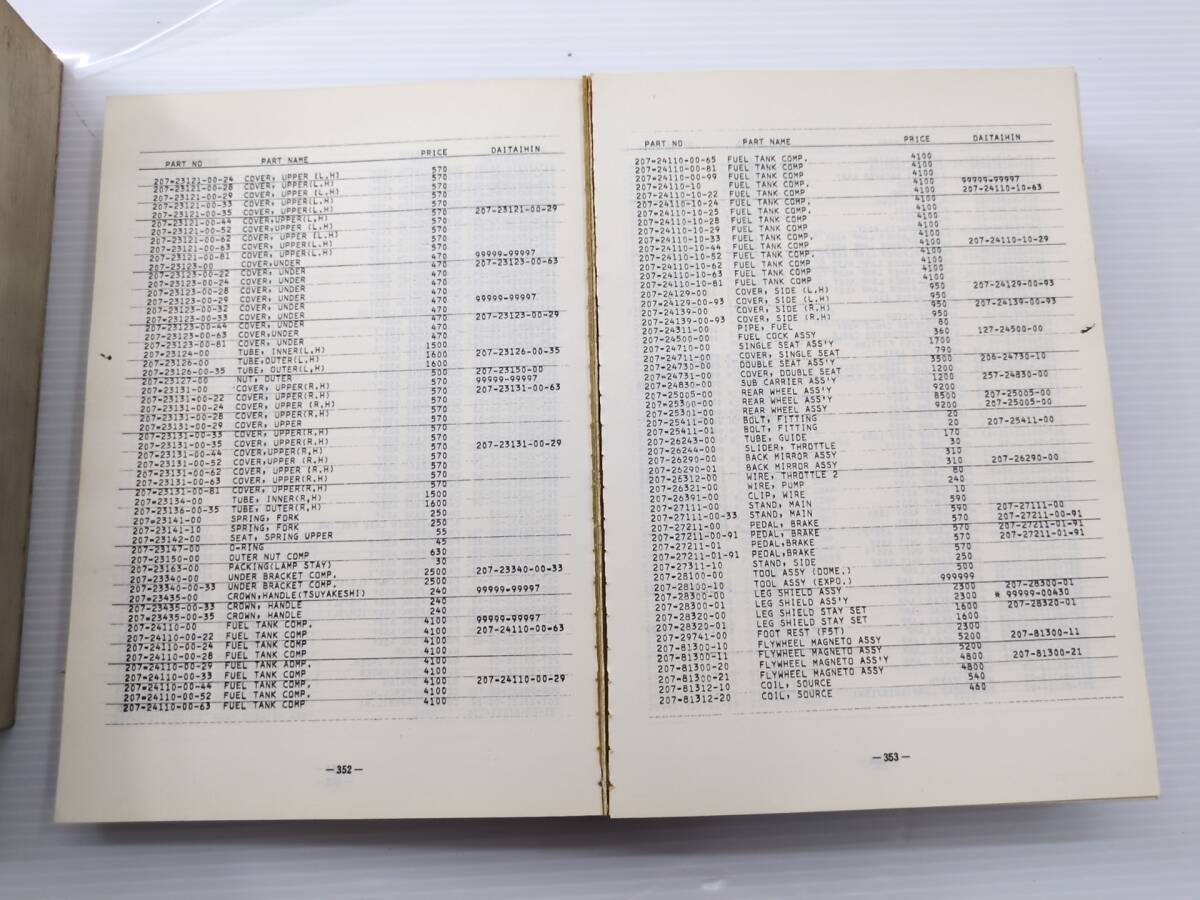 PART NO PART NAME PRICE DAITAIHIN
207-23121-00-24 COVER, UPPER (L,H) 570
207-23121-00-28 COVER, UPPER(L,H) 570
207-23121-00-29 COVER, UPPER (L,H) 570
207-23121-00-33 COVER, UPPER(L,H) 570
207-23121-00-35 COVER, UPPER(L,H) 570
207-23121-00-44 COVER,UPPER(L,H) 570 207-23121-00-29
207-23121-00-52 COVER,UPPER (L,H) 570
207-23121-00-62 COVER, UPPER (L,H) 570
207-23121-00-63 COVER, UPPER(L,H) 570
207-23121-00-81 COVER, UPPER(L,H) 570
207-23123-00 COVER,UNDER 470 99999-99997
207-23123-00-22 COVER, UNDER 470 207-23123-00-63
207-23123-00-24 COVER, UNDER 470
207-23123-00-28 COVER, UNDER 470
207-23123-00-29 COVER, UNDER 470
207-23123-00-32 COVER, UNDER 470 99999-99997
207-23123-00-33 COVER, UNDER 470
207-23123-00-44 COVER, UNDER 470 207-23123-00-29
207-23123-00-63 COVER,UNDER 470
207-23123-00-81 COVER, UNDER 470
207-23124-00 TUBE, INNER(L,H) 1500
207-23126-00 TUBE,OUTER(L,H) 1600 207-23126-00-35
207-23126-00-35 TUBE, OUTER(L,H) 1600
207-23127-00 NUT, OUTER 500 207-23150-00
207-23131-00 COVER, UPPER(R,H) 570 99999-99997
207-23131-00-22 COVER, UPPER(R,H) 570 207-23131-00-63
207-23131-00-24 COVER, UPPER (R,H) 570
207-23131-00-28 COVER, UPPER(R,H) 570
207-23131-00-29 COVER, UPPER 570
207-23131-00-33 COVER, UPPER(R,H) 570
207-23131-00-35 COVER, UPPER(R,H) 570
207-23131-00-44 COVER,UPPER(R,H) 570 207-23131-00-29
207-23131-00-52 COVER,UPPER (R,H) 570
207-23131-00-62 COVER, UPPER (R,H) 570
207-23131-00-63 COVER, UPPER(R,H) 570
207-23131-00-81 COVER, UPPER(R,H) 570
207-23134-00 TUBE, INNER(R,H) 1500
207-23136-00-35 TUBE, OUTER(R,H) 1600
207-23141-00 SPRING, FORK 250
207-23141-10 SPRING, FORK 250
207-23142-00 SEAT, SPRING UPPER 55
207-23147-00 O-RING 45
207-23150-00 OUTER NUT COMP 630
207-23163-00 PACKING(LAMP STAY) 30
207-23340-00 UNDER BRACKET COMP. 2500 207-23340-00-33
207-23340-00-33 UNDER BRACKET COMP. 2500
207-23435-00 CROWN,HANDLE(TSUYAKESHI) 240 99999-99997
207-23435-00-33 CROWN, HANDLE 240
207-23435-00-35 CROWN, HANDLE 240
207-24110-00 FUEL TANK COMP. 4100 99999-99997
207-24110-00-22 FUEL TANK COMP. 4100 207-24110-00-63
207-24110-00-24 FUEL TANK COMP 4100
207-24110-00-28 FUEL TANK COMP 4100
207-24110-00-29 FUEL TANK ADMP. 4100
207-24110-00-33 FUEL TANK COMP. 4100
207-24110-00-44 FUEL TANK COMP. 4100 207-24110-00-29
207-24110-00-52 FUEL TANK COMP. 4100
207-24110-00-63 FUEL TANK COMP 4100
—352—
PART NO PART NAME PRICE DAITAIHIN
207-24110-00-65 FUEL TANK COMP. 4100
207-24110-00-81 FUEL TANK COMP 4100
207-24110-00-99 FUEL TANK COMP 4100
207-24110-10 FUEL TANK COMP. 4100 99999-99997
207-24110-10-22 FUEL TANK COMP 4100 207-24110-10-63
207-24110-10-24 FUEL TANK COMP. 4100
207-24110-10-25 FUEL TANK COMP 4100
207-24110-10-28 FUEL TANK COMP 4100
207-24110-10-29 FUEL TANK COMP 4100
207-24110-10-33 FUEL TANK COMP. 4100
207-24110-10-44 FUEL TANK COMP 4100 207-24110-10-29
207-24110-10-52 FUEL TANK COMP 4100
207-24110-10-62 FUEL TANK COMP 4100
207-24110-10-63 FUEL TANK COMP 4100
207-24110-10-81 FUEL TANK COMP 4100
207-24129-00 COVER, SIDE (L,H) 950 207-24129-00-93
207-24129-00-93 COVER, SIDE (L,H) 950
207-24139-00 COVER, SIDE (R,H) 950 207-24139-00-93
207-24139-00-93 COVER, SIDE (R,H) 950
207-24311-00 PIPE, FUEL 80
207-24500-00 FUEL COCK ASSY 360 127-24500-00
207-24710-00 SINGLE SEAT ASS'Y 1700
207-24711-00 COVER, SINGLE SEAT 790
207-24730-00 DOUBLE SEAT ASS'Y 3500 206-24730-10
207-24731-00 COVER, DOUBLE SEAT 1200
207-24830-00 SUB CARRIER ASS'Y 1200 257-24830-00
207-25005-00 REAR WHEEL ASS'Y 9200
207-25300-00 REAR WHEEL ASS'Y 8500 207-25005-00
207-25301-00 REAR WHEEL ASSY 9200 207-25005-00
207-25411-00 BOLT, FITTING 20
207-25411-01 BOLT, FITTING 20 207-25411-00
207-26243-00 TUBE, GUIDE 170
207-26244-00 SLIDER, THROTTLE 30
207-26290-00 BACK MIRROR ASSY 310
207-26290-01 BACK MIRROR ASSY 310 207-26290-00
207-26312-00 WIRE, THROTTLE 2 80
207-26321-00 WIRE, PUMP 240
207-26391-00 CLIP, WIRE 10
207-27111-00 STAND, MAIN 590
207-27111-00-33 STAND, MAIN 590 207-27111-00
207-27211-00 PEDAL, BRAKE 570 207-27211-00-91
207-27211-00-91 PEDAL, BRAKE 570 207-27211-01-91
207-27211-01 PEDAL,BRAKE 570 207-27211-01-91
207-27211-01-91 PEDAL,BRAKE 570
207-27311-10 STAND, SIDE 250
207-28100-00 TOOL ASSY (DOME.) 500
207-28100-10 TOOL ASSY (EXPO.) 999999
207-28300-00 LEG SHIELD ASSY 2300 207-28300-01
207-28300-01 LEG SHIELD ASS'Y 2300 * 99999-00430
207-28320-00 LEG SHIELD STAY SET 1600 207-28320-01
207-28320-01 LEG SHIELD STAY SET 1600
207-29741-00 FOOT REST (F5T) 2300
207-81300-10 FLYWHEEL MAGNETO ASSY 5200 207-81300-11
207-81300-11 FLYWHEEL MAGNETO ASSY 5200
207-81300-20 FLYWHEEL MAGNETO ASS'Y 4800 207-81300-21
207-81300-21 FLYWHEEL MAGNETO ASSY 4800
207-81312-10 COIL, SOURCE 540
207-81312-20 COIL, SOURCE 460
—353—